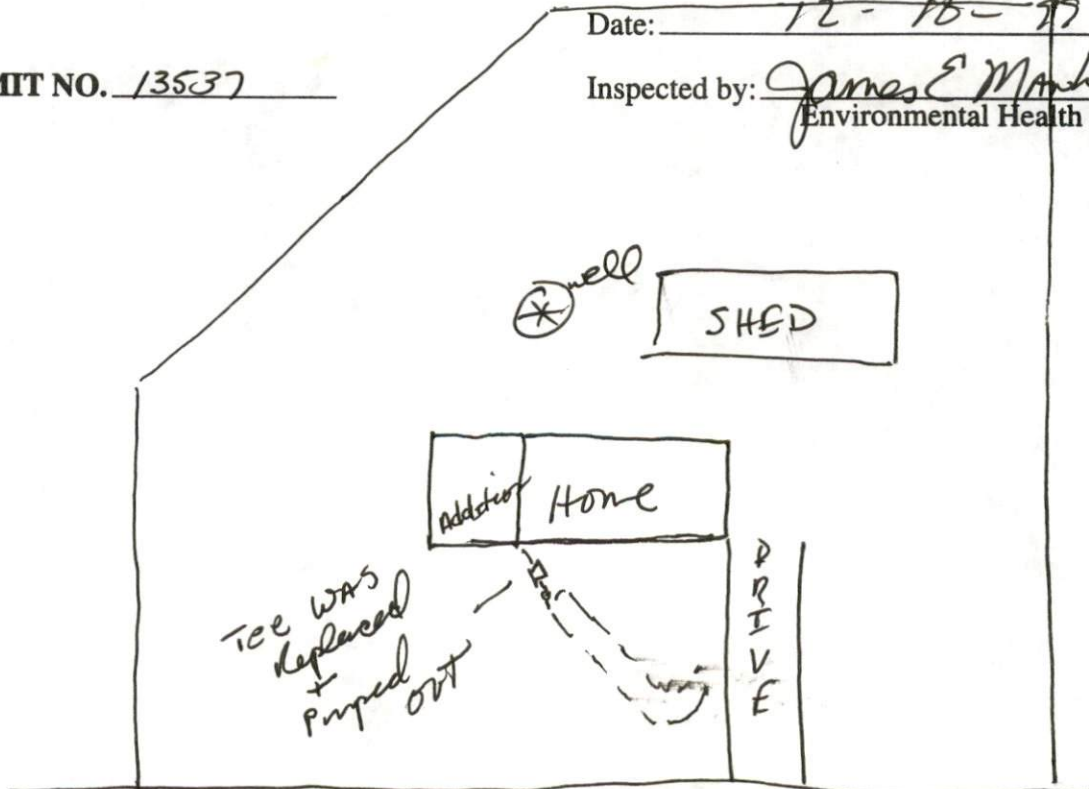 Date: 12 - 10 -
MIT NO. 13537
Inspected by: James E
Environmental Health
well
SHED
Addition
Home
TEE WAS
Replaced
+
Pumped
OUT
DRIVE